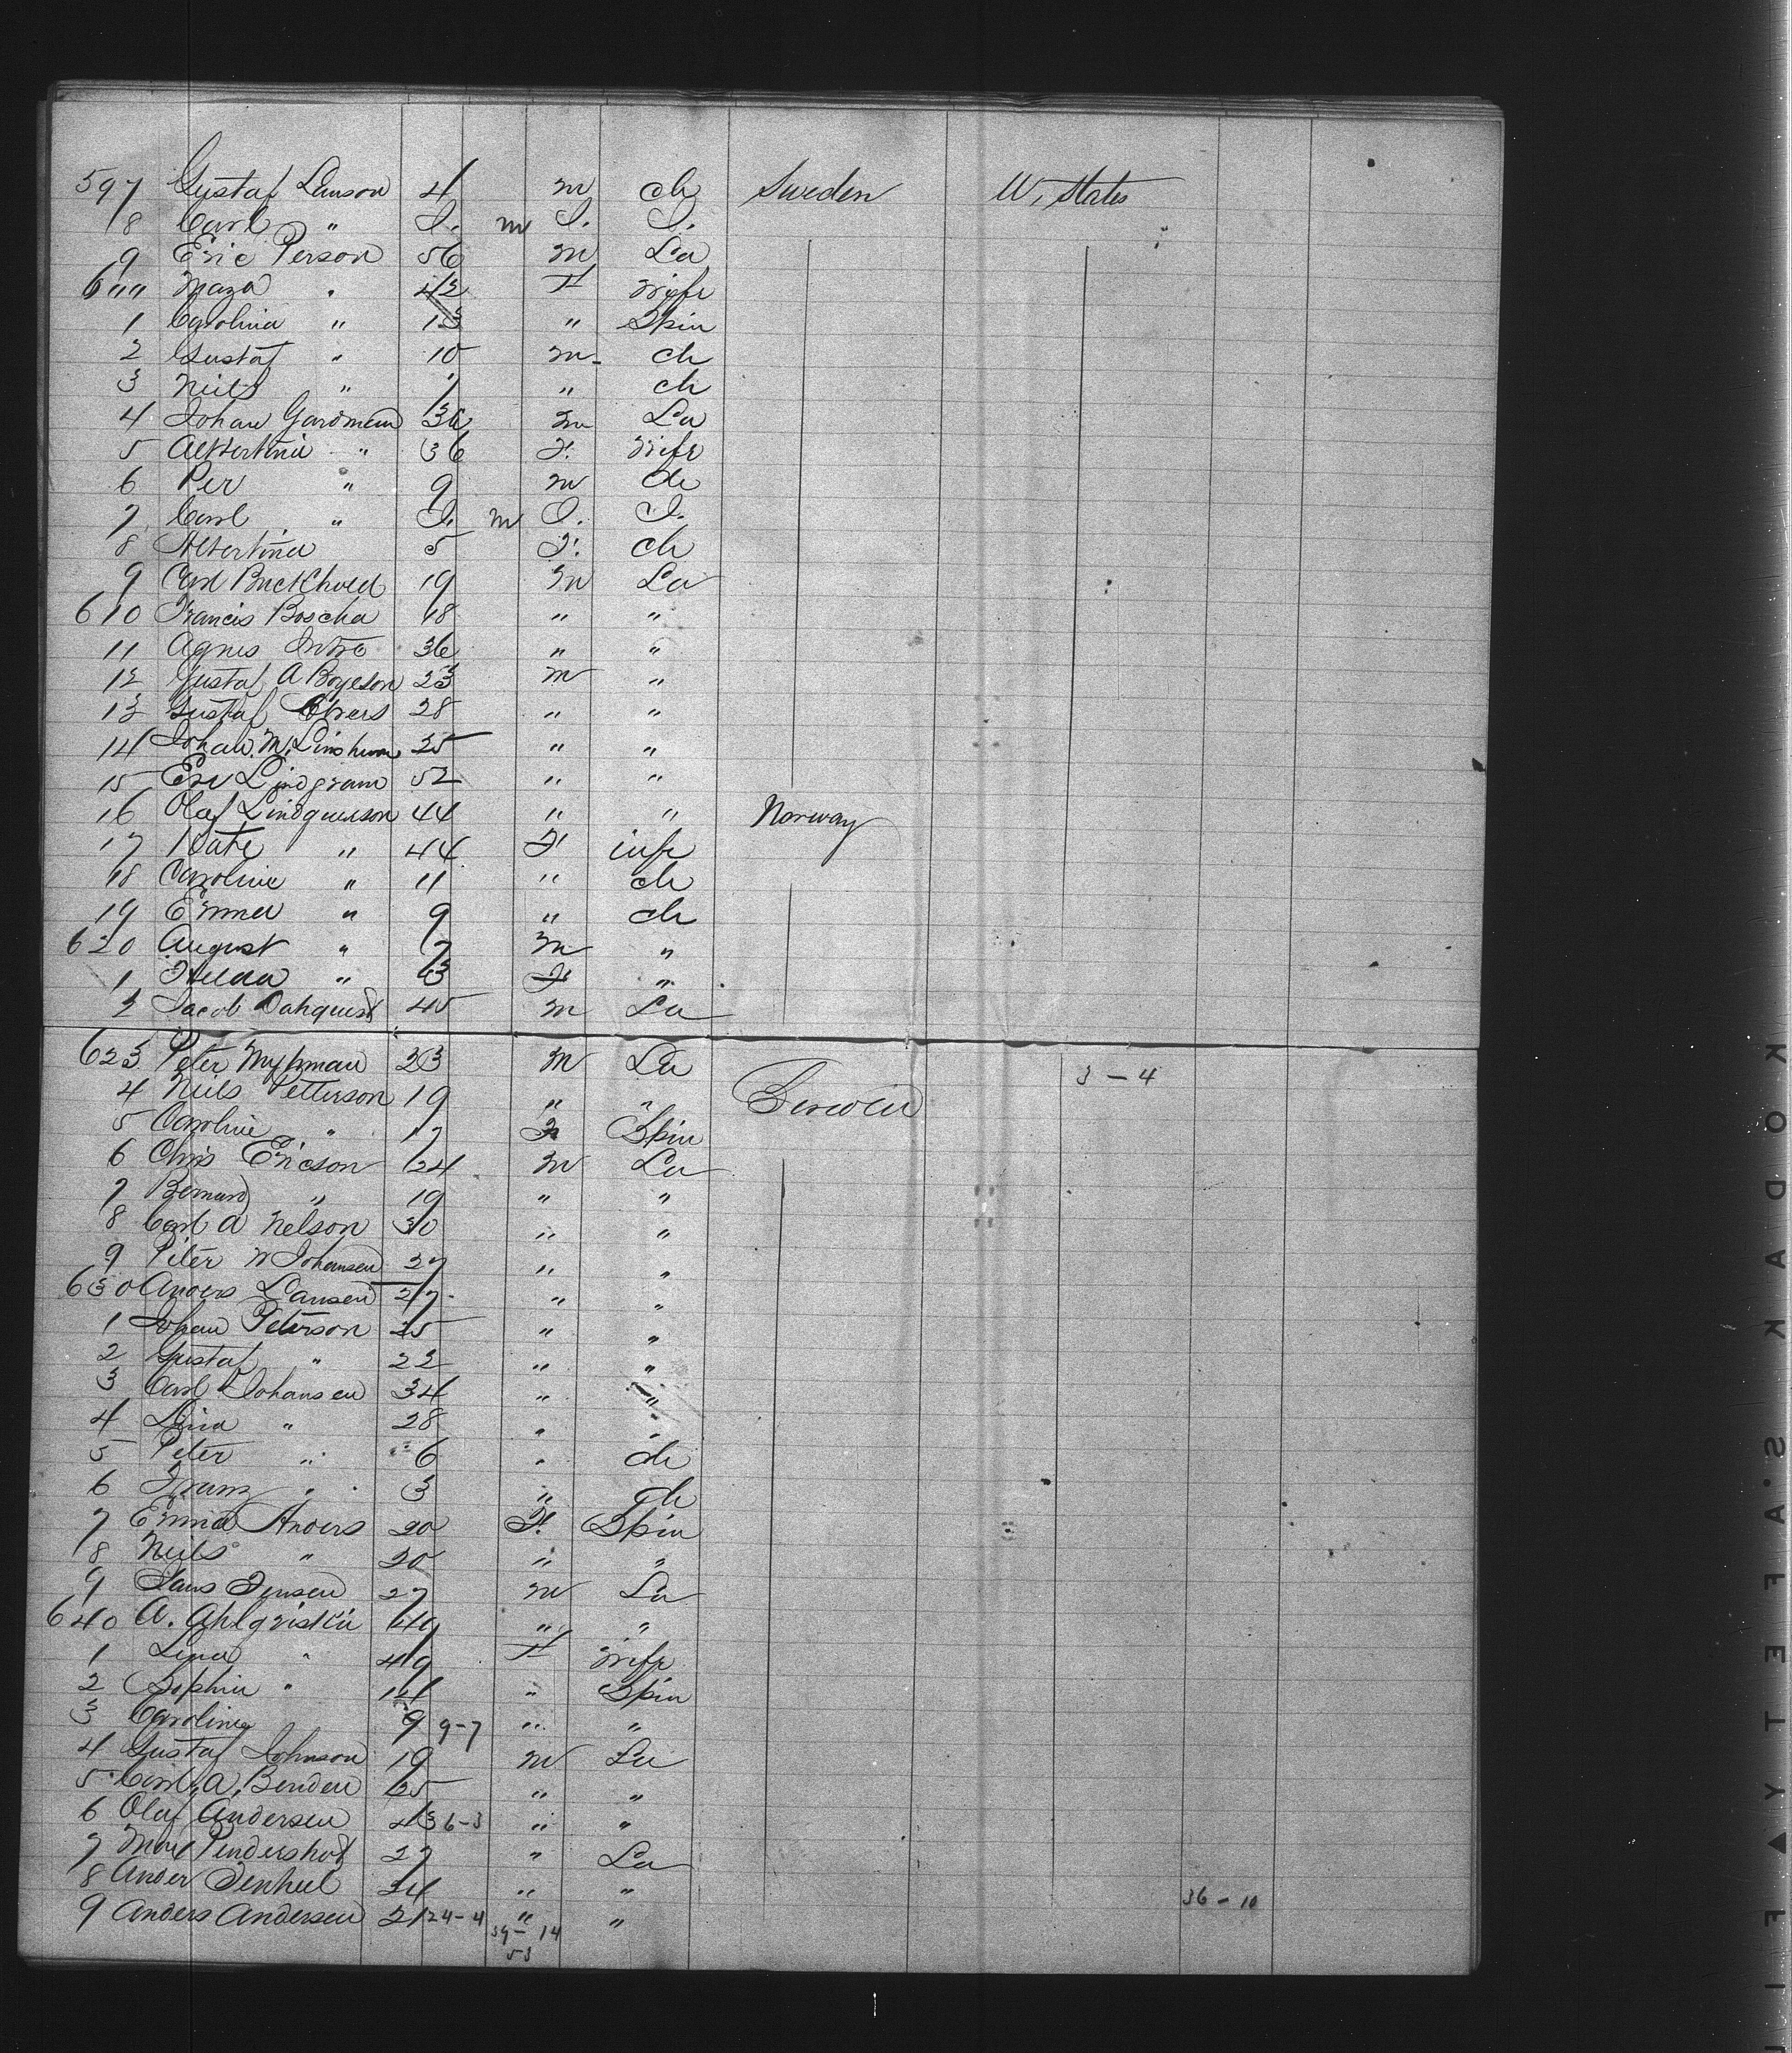 597 Gustaf Lauson 4 m ch Sweden U. States
8 Carl " I. m I. I.
9 Eric Person 56 m La
6"" Maza " 42 F wife
1 Carolina " 13 " Spin
2 Gustaf " 10 m ch
3 Neils " 7 " ch
4 Johan 36 m La
5 Albertina " 36 F. wife
6 Per " 9 m ch
7 Carl " I. m I. I.
8 Albertina 5 F. ch
9 Carl 19 m La
610 Francis Boscha 18 " "
11 Agnes 36 " "
12 Gustaf A Boyeson 23 m "
13 Gustaf 28 " "
14 Johan M. 25 " "
15 Eric Lindgram 52 " "
16 Olaf 44 " " Norway
17 Kate " 44 F wife
18 Caroline " 11 " ch
19 Emma " 9 " ch
620 August " 7 m "
1 Hilda " 3 F "
2 Jacob Dahquist 45 m La
623 Peter 23 m La 3-4
4 Neils Petterson 19 " "
5 Caroline " 17 F Spin
6 Chris Ericson 24 m La
7 Bernard " 19 " "
8 Carl A Nelson 30 " "
9 Peter N Johansen 27 " "
630 Anders Lausen 27 " "
1 Johan Peterson 25 " "
2 Gustaf " 22 " "
3 Carl Johansen 34 " "
4 Lina " 28 " "
5 Peter " 6 " ch
6 Franz " 3 " ch
7 Emma Anders 20 F. Spin
8 Neils " 20 " "
9 Hans Jensen 27 m La
640 A. 49 " "
1 Lina " 49 F wife
2 Sophia " 14 " Spin
3 Caroline 9 9-7 " "
4 Gustaf Johnson 19 m La
5 Carl A. Benden 25 " "
6 Olaf Andersen 43 6-3 " "
7 27 " La
8 Ander 24 " " 36-10
9 Anders Andersen 21 24-4 " "
39-14
53
KODAK S.A.FE.TY